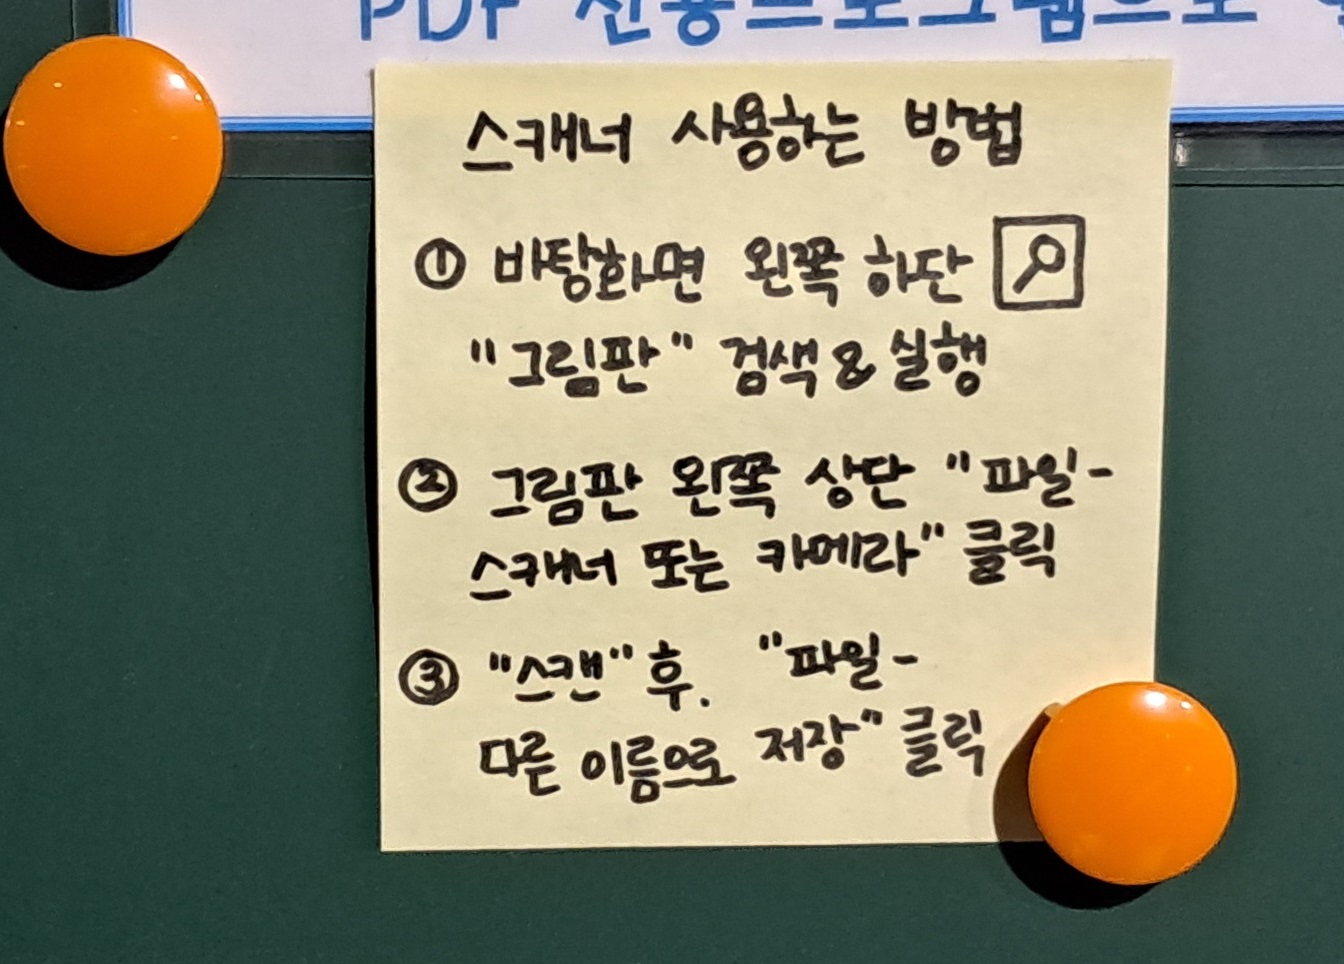 PDF 전용프로그램으로
스캐너 사용하는 방법
① 바탕화면 왼쪽 하단
"그림판" 검색 & 실행
② 그림판 왼쪽 상단 "파일-
스캐너 또는 카메라" 클릭
③ "스캔" 후. "파일-
다른 이름으로 저장" 클릭